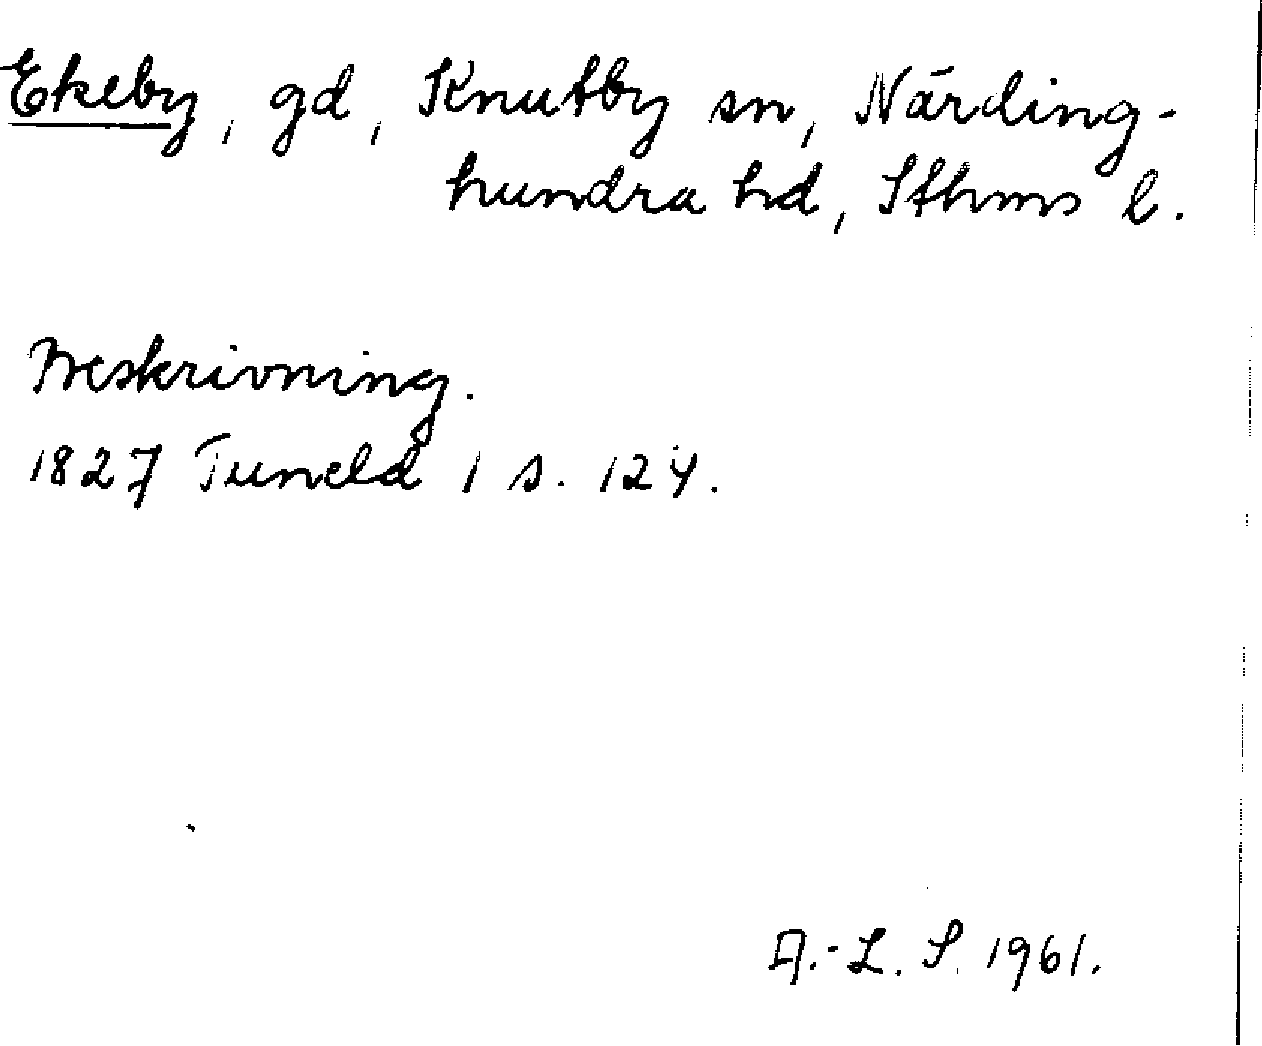 Ekeby, gd, Knutby sn, Närding-
hundra hd, Sthms l.
Beskrivning.
1827 Tuneld 1 s. 124.
A.-L. S. 1961.